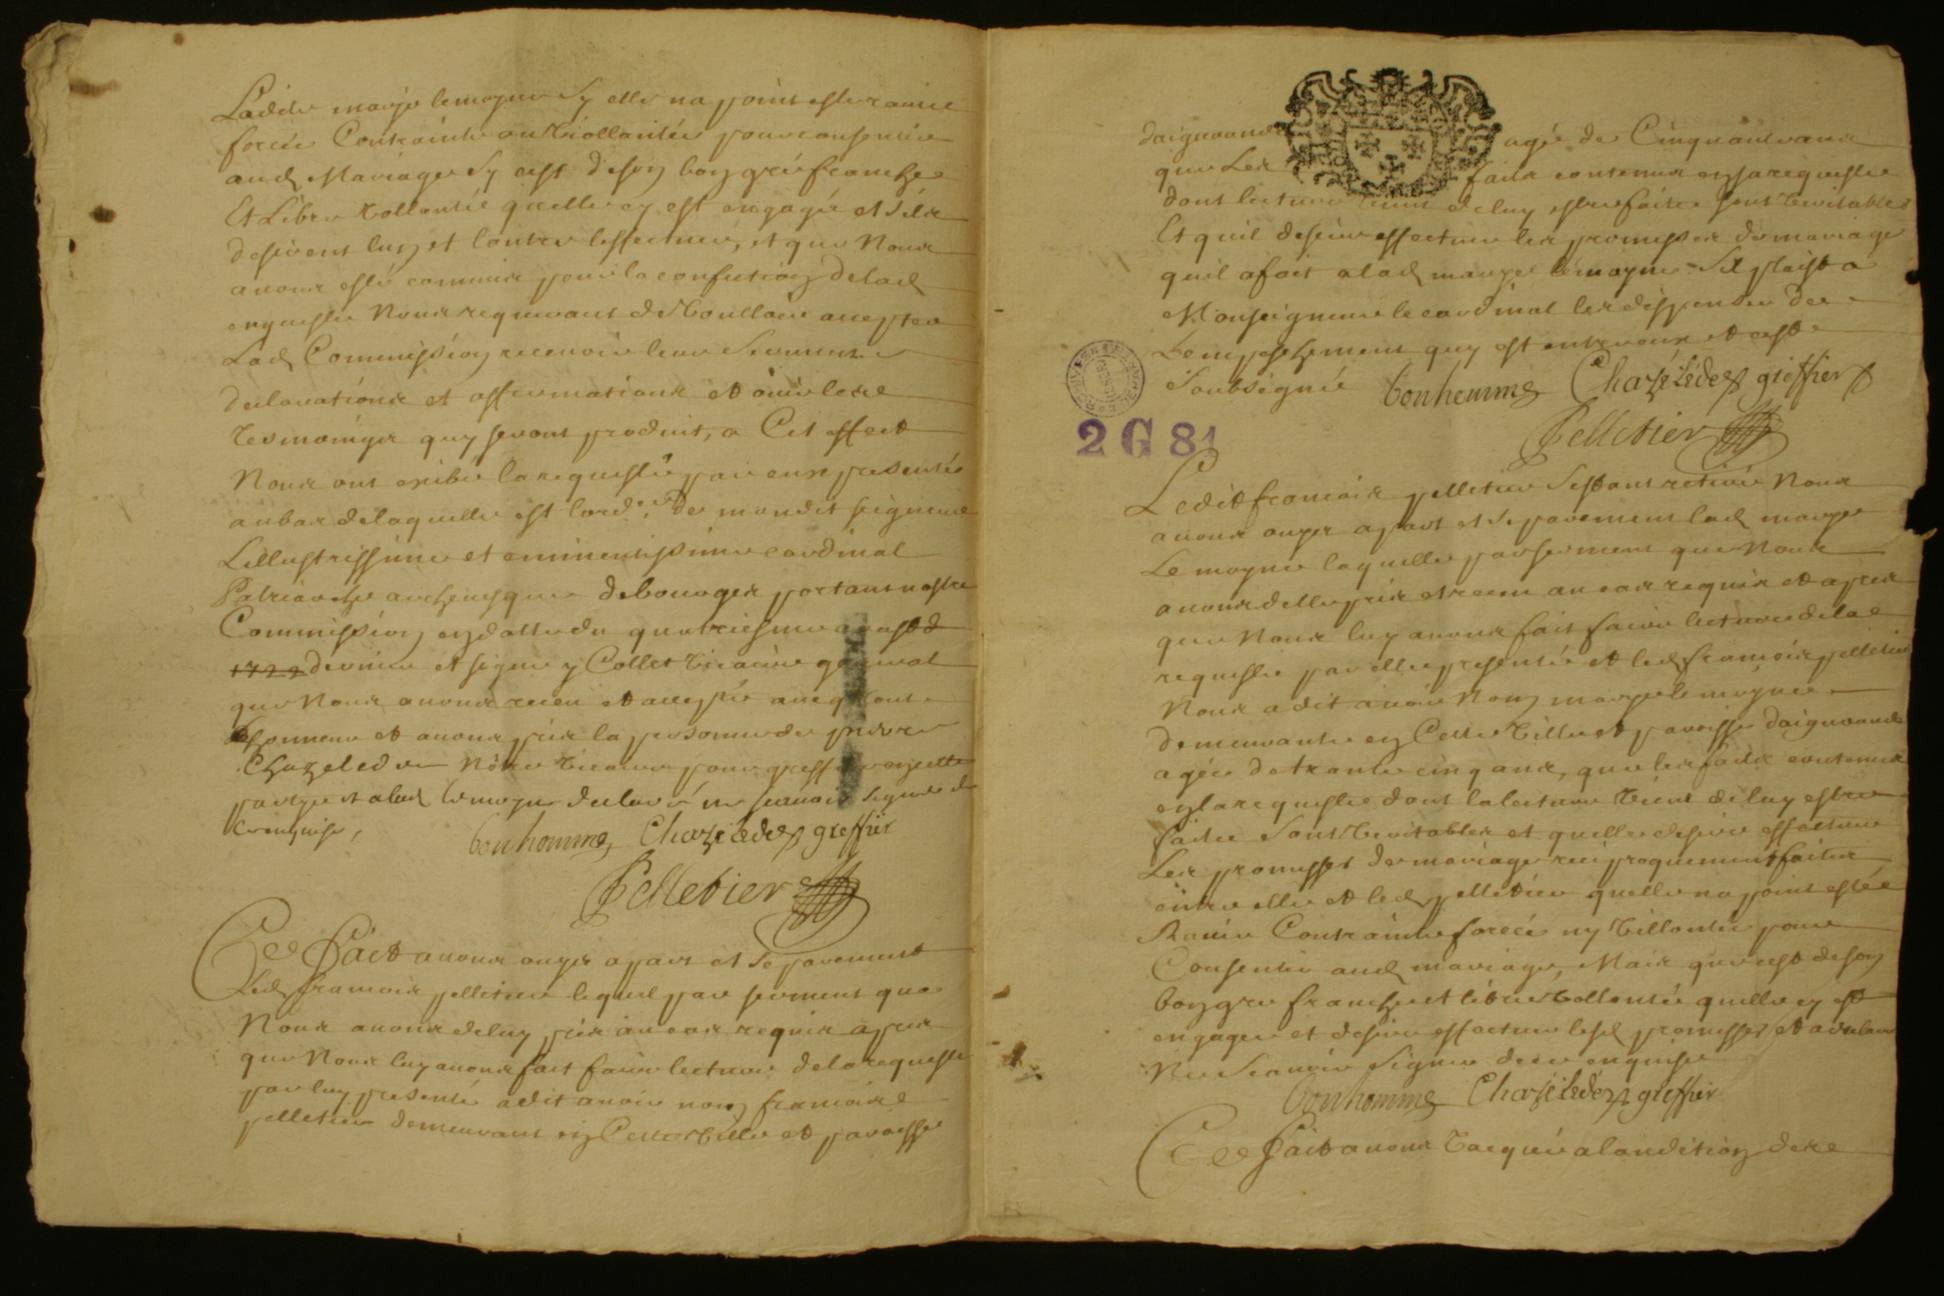 Ladite marye lemoyne Sy elle na point esté ravie
forcée Contrainte ou viollantée pour consentir
aud Mariage Sy cest de son bon gré franche
Et Libre vollonté quelle cy est engagée et sils
desirent luy et lautre leffectuer, et que Nous
avons esté commis pour la confection de lad
enqueste Nous requerant de voulloir accepter
Lad Commission recevoir leur Serment
declarations et affirmations et ouir les
tesmoings quy seront produit, a Cet effect
Nous ont exibé la requeste par eux presentée
au bas de laquelle est lord.ce de mondit seigneur
Lillustrissime et eminentissime cardinal
Patriarche archevesque de bourges portant nostre
Commission en datte du quatriesme aoust
1729 dernier et signé y Collet vicaire general
que Nous avons receu et accepté avecq tout
honneur et avons pris la personne de
Chazeledes Nôtre vicaire pour greffier
partye et a lad lemoyne declaré ne scavoir signer de
ce enquise,
bonhomme Chazeledes greffier
Pelletier
Ce Faict avons ouys a part et Separement
Led francois pelletier lequel par serment que
Nous avons de luy pris au cas requis apres
que Nous luy avons fait faire lecture de la requeste
par luy presentée a dit avoir nom francois
pelletier demeurant en Cette ville et paroisse
daigurande agé de Cinquante ans
que Les faits contenus en sa requeste
dont lecture vient de luy estre faitte sont veritables
Et quil desire effectuer les promesses de mariage
quil a fait a lad marye lemoyne Sil plaist a
Monseigneur le cardinal les dispenser de
Lempeschement quy est entreux et cest
Soubsigné bonhomme Chazeledes greffier
Pelletier
2 G 81
Ledit francois pelletier Sestant retiré Nous
avons ouys apart et Separement lad marye
Le moyne laquelle par serment que Nous
avons delle pris et receu au cas requis et apres
que Nous luy avons fait faire lecture de la
requeste par elle presentée et led francois pelletier
Nous a dit avoir Nom marye le moyne
demeurante en Cette ville et paroisse daigurande
agée de trante cinq ans, que les faits contenus
en la requeste dont la lecture vient de luy estre
faitte sont veritables et quelle desire effectuer
Les promesses de mariage reciproquement faites
entre elle et led pelletier quelle na point esté
Ravie Contrainte forcée ny villontée pour
Consentir aud mariage, Mais que cest de son
bon gre franche et libre vollonté quelle cy est
engagée et desire effectuer lesd promesses et a declaré
Ne Scavoir Signer de ce enquise
bonhomme Chazeledes greffier
Ce Faict avons vacqué a laudition des